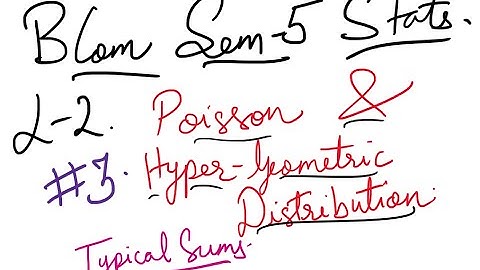 BCom Sem-5 Stats.
L-2. Poisson &
#3. Hyper-Geometric
Distribution.
Typical Sums.